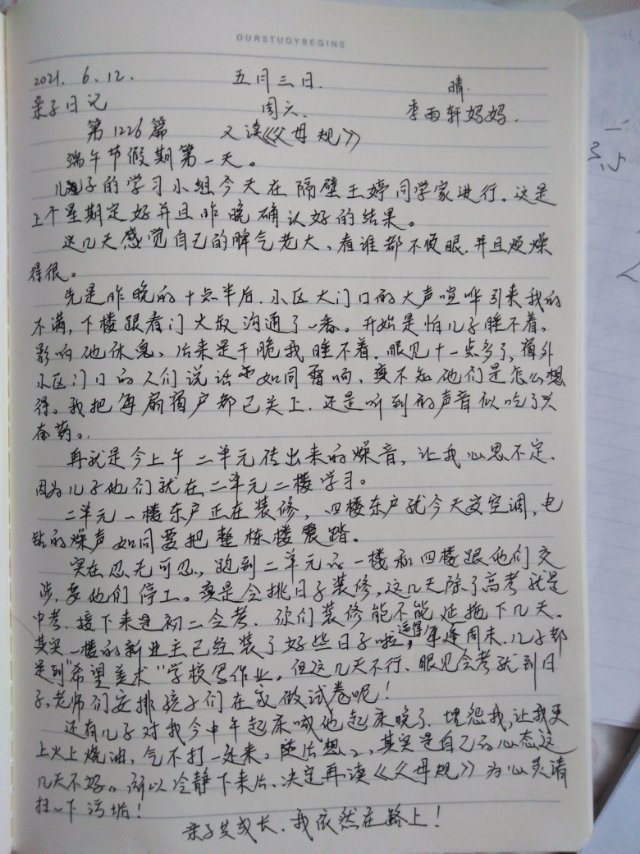 OURSTUDYBEGINS
2021.6.12. 五月三日. 晴.
亲子日记 周六. 李雨轩妈妈.
第1226篇 又读《父母规》
端午节假期第一天。
儿子的学习小组今天在隔壁王婷同学家进行.这是
上个星期定好并且昨晚确认好的结果。
这几天感觉自己的脾气老大、看谁都不顺眼.并且烦燥
得很。
先是昨晚的十点半后.小区大门口的大声喧哗引来我的
不满,下楼跟看门大叔沟通了一番。开始是怕儿子睡不着.
影响他休息,后来是干脆我睡不着.眼见十一点多了,窗外
小区门口的人们说话如同雷响,真不知他们是怎么想
得。我把每扇窗户都已关上.还是听到的声音似吃了兴
奋药。
再就是今上午二单元传出来的燥音,让我心思不定.
因为儿子他们就在二单元二楼学习。
二单元一楼东户正在装修,四楼东户就今天安空调,电
钻的燥声如同要把整栋楼震踏。
实在忍无可忍,跑到二单元的一楼和四楼跟他们交
涉,要他们停工。真是会挑日子装修,这几天除了高考就是
中考.接下来是初二会考.你们装修能不能延拖下几天.
其实一楼的新业主已经装了好些日子啦,每逢周末.儿子都
是到"希望美术"学校写作业。但这几天不行.眼见会考就到日
子,老师们安排孩子们在家做试卷呢!
还有儿子对我今中午起床喊他起床晚了.埋怨我,让我更
上火上烧油,气不打一处来。随后想,其实是自己的心态这
几天不好。所以冷静下来后.决定再读《父母规》为心灵清
扫一下污垢!
亲子共成长.我依然在路上!